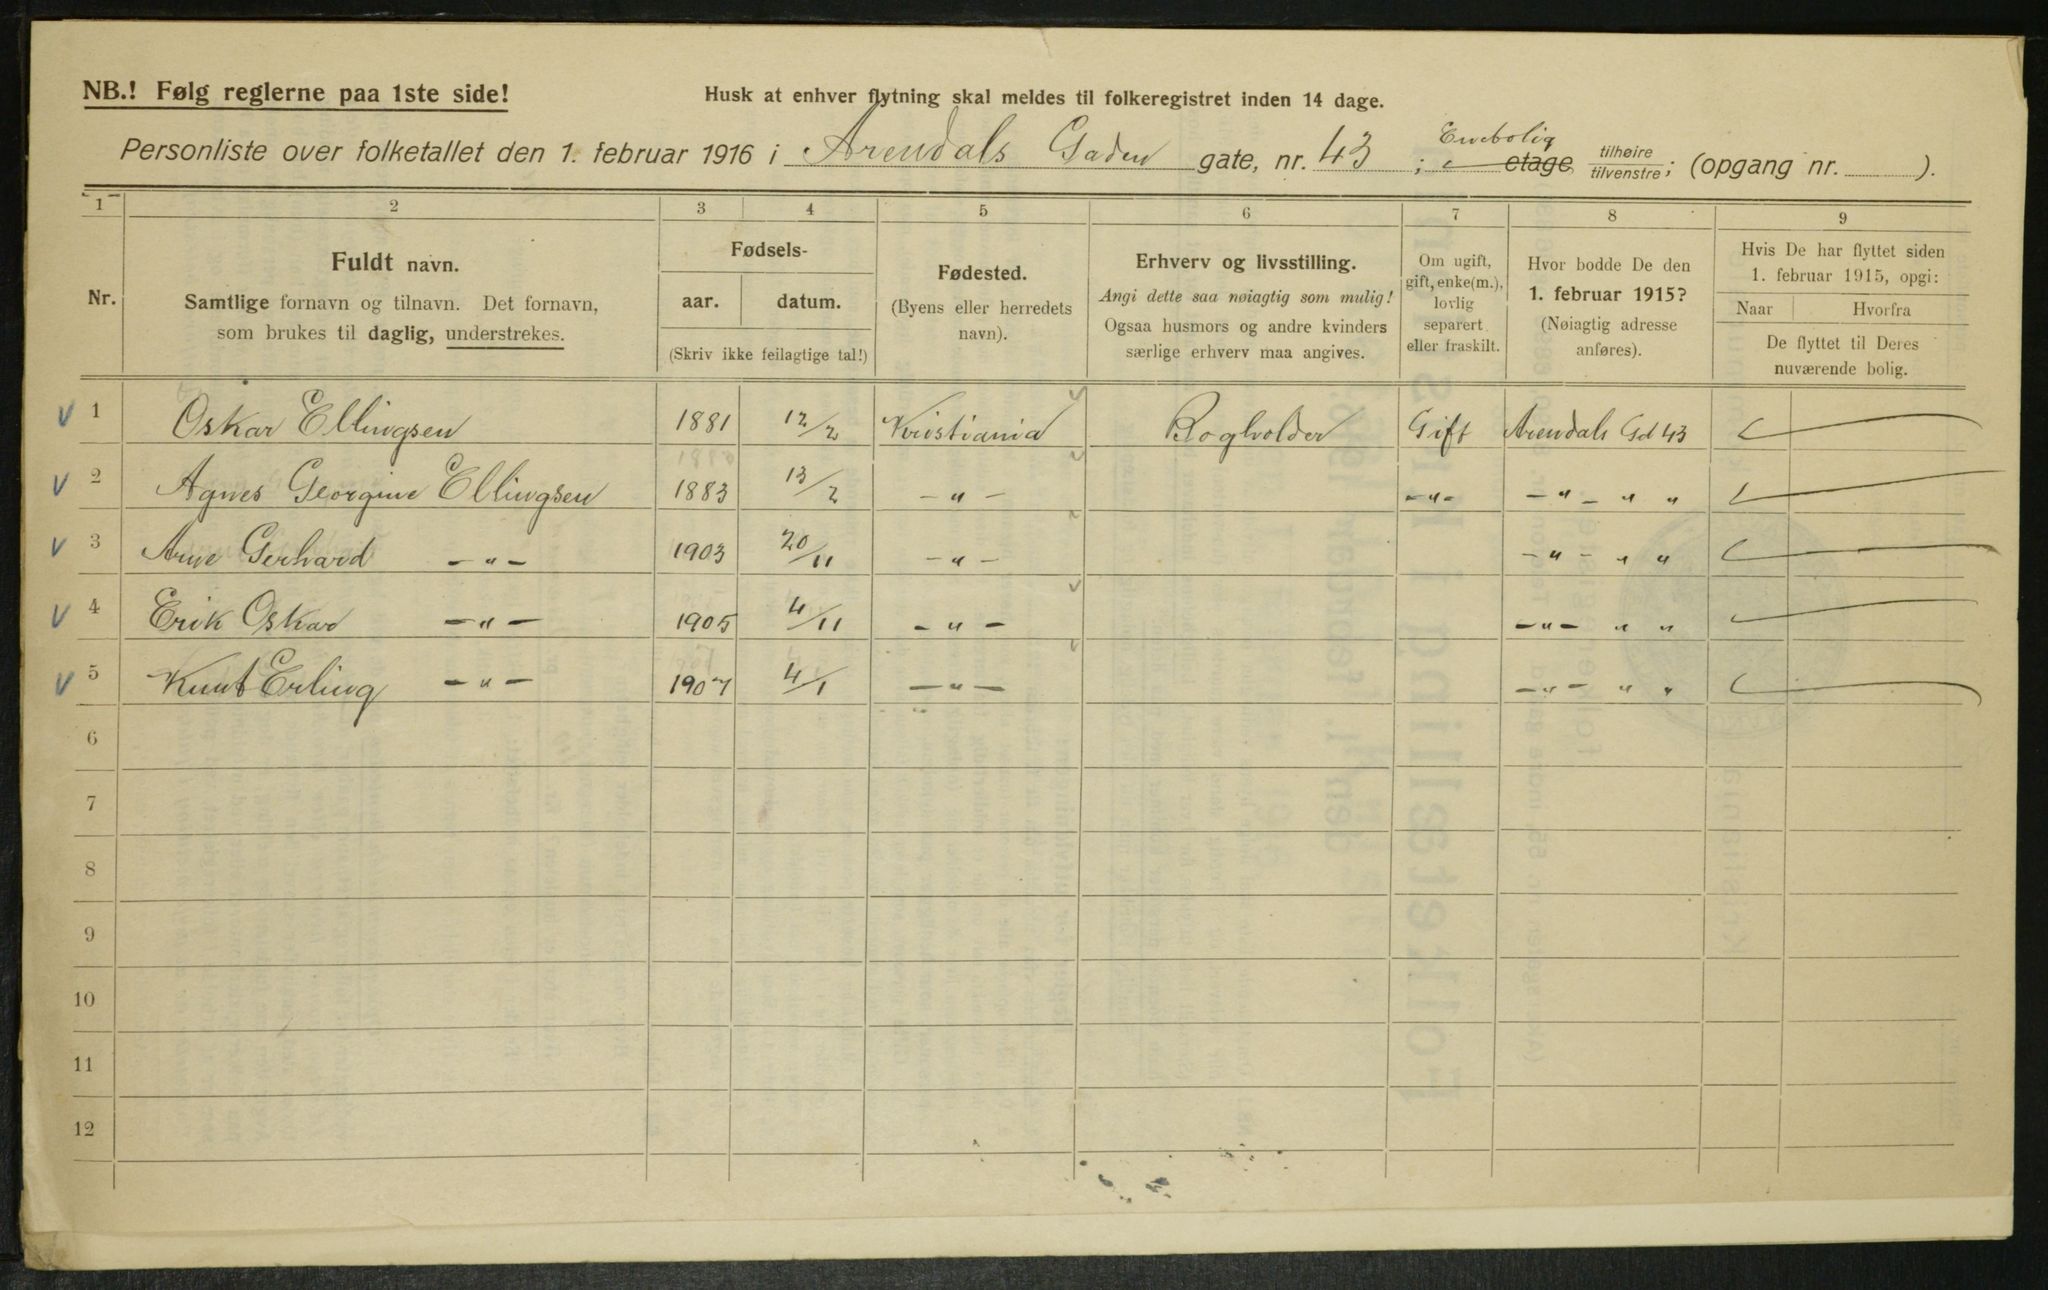 NB.! Følg reglerne paa 1ste side!
Husk at enhver flytning skal meldes til folkeregistret inden 14 dage.
Personliste over folketallet den 1. februar 1916 i Arendals Gaden gate, nr. 43 ; Enebolig etage tilhøire/tilvenstre; (opgang nr. ).
1 2 3 4 5 6 7 8 9
Nr.
Fuldt navn.
Samtlige fornavn og tilnavn. Det fornavn,
som brukes til daglig, understrekes.
Fødsels-
aar. datum.
(Skriv ikke feilagtige tal!)
Fødested.
(Byens eller herredets
navn).
Erhverv og livsstilling.
Angi dette saa nøiagtig som mulig!
Ogsaa husmors og andre kvinders
særlige erhverv maa angives.
Om ugift,
gift, enke(m.),
lovlig
separert
eller fraskilt.
Hvor bodde De den
1. februar 1915?
(Nøiagtig adresse
anføres).
Hvis De har flyttet siden
1. februar 1915, opgi:
Naar Hvorfra
De flyttet til Deres
nuværende bolig.
1 Oskar Ellingsen 1881 12/2 Kristiania Bogholder Gift Arendals Gd 43
2 Agnes Georgine Ellingsen 1883 13/2 -"- -"- -"- " "
3 Arne Gerhard -"- 1903 20/11 -"- -"- " "
4 Erik Oskar -"- 1905 4/11 -"- -"- " "
5 Knut Erling -"- 1907 4/1 -"- -"- " "
6
7
8
9
10
11
12